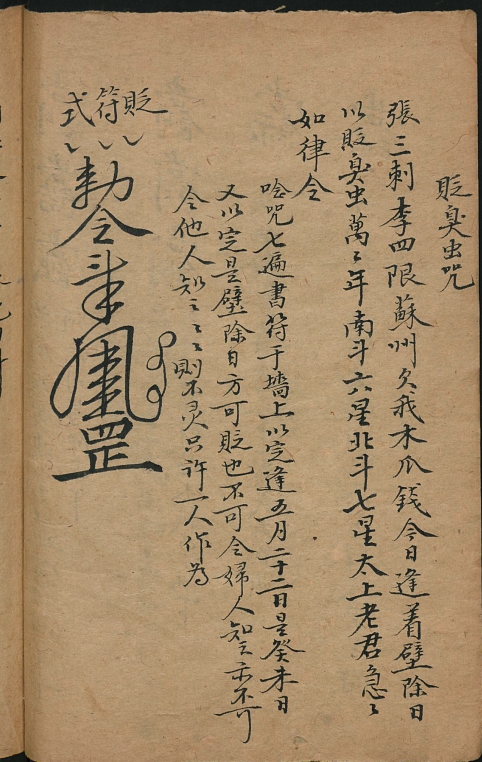 貶臭虫咒
張三刺李四限蘇州欠我木瓜錢今日逢着壁除日
以貶臭虫萬々年南斗六星北斗七星太上老君急々
如律令
唸咒七遍書符于墻上以定逢五月二十二日是癸未日
又以定是壁除日方可貶也不可令婦人知之亦不可
令他人知之々々則不灵只許一人作為
貶符式
勅令
罡